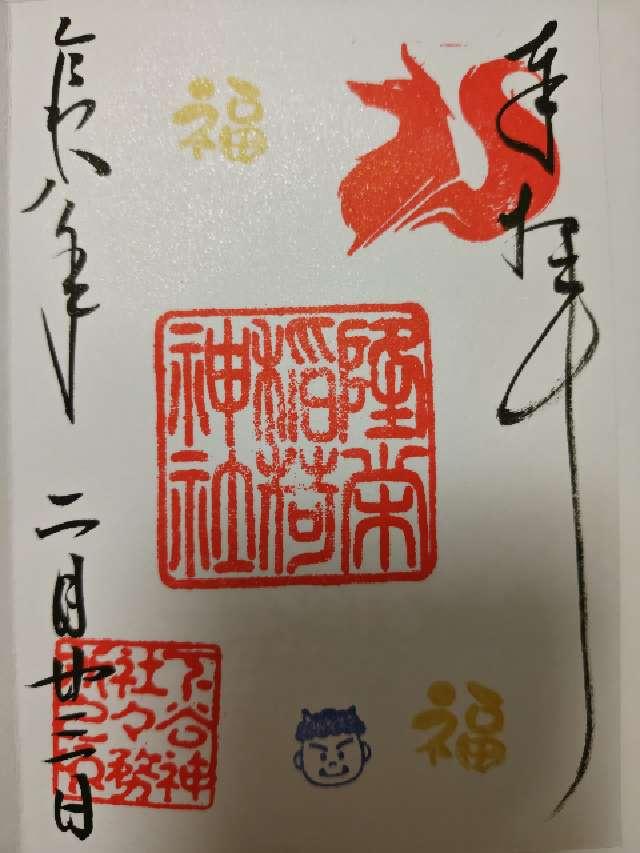 奉拝
福
隆栄
稲荷
神社
福
下谷神
社々務
所之印
令和八年 二月廿三日